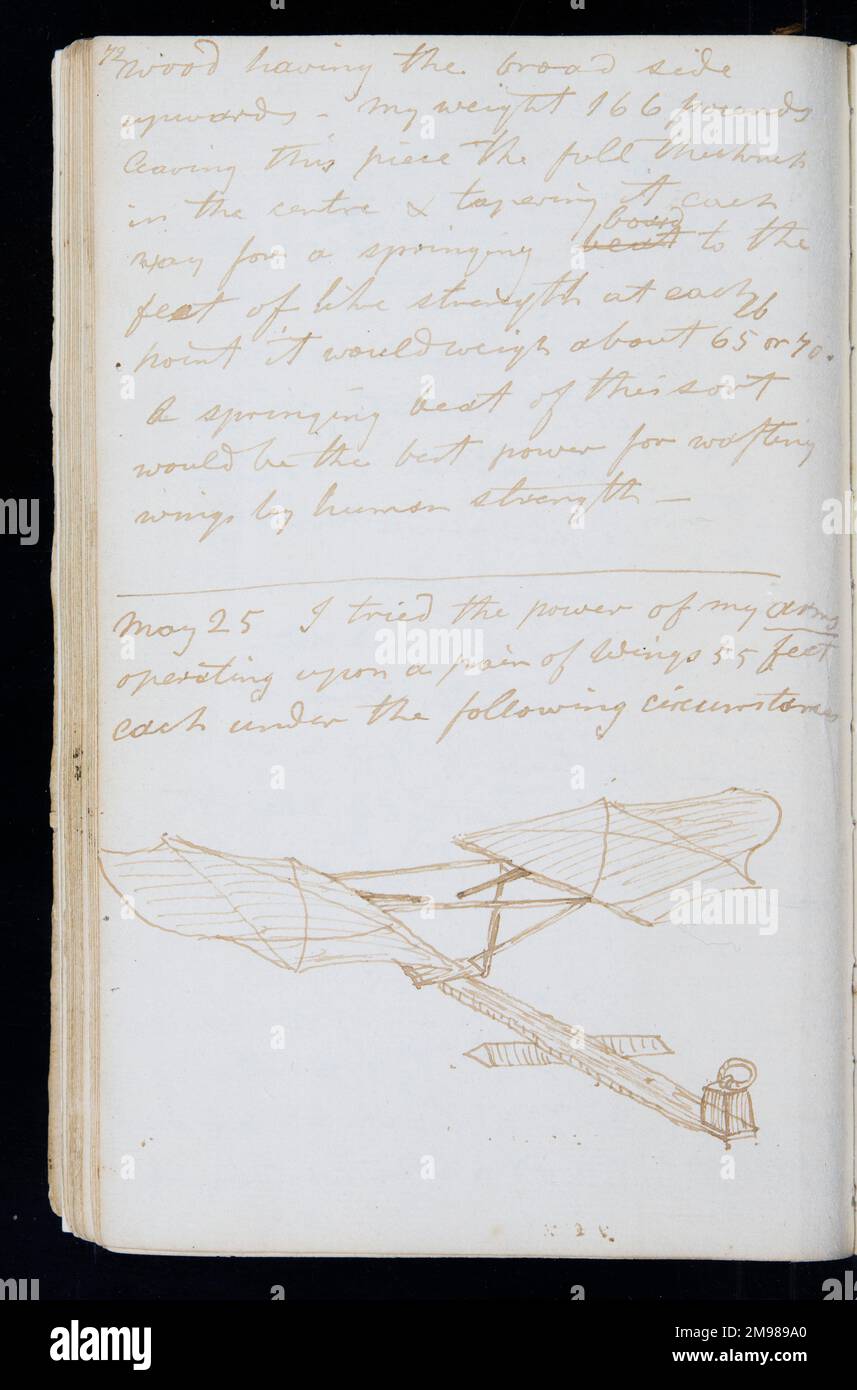 72
wood having the broad side
upwards - My weight 166 pounds
leaving this piece the full thickness
in the centre & tapering it each
way for a springing beat board to the
feet of like strength at each
point it would weigh about 65 or 70.
A springing beat of this sort
would be the best power for wafting
wings by human strength —
May 25 I tried the power of my arms
operating upon a pair of Wings 55 feet
each under the following circumstances
alamy
a
www.alamy.com
Image ID: 2M989A0